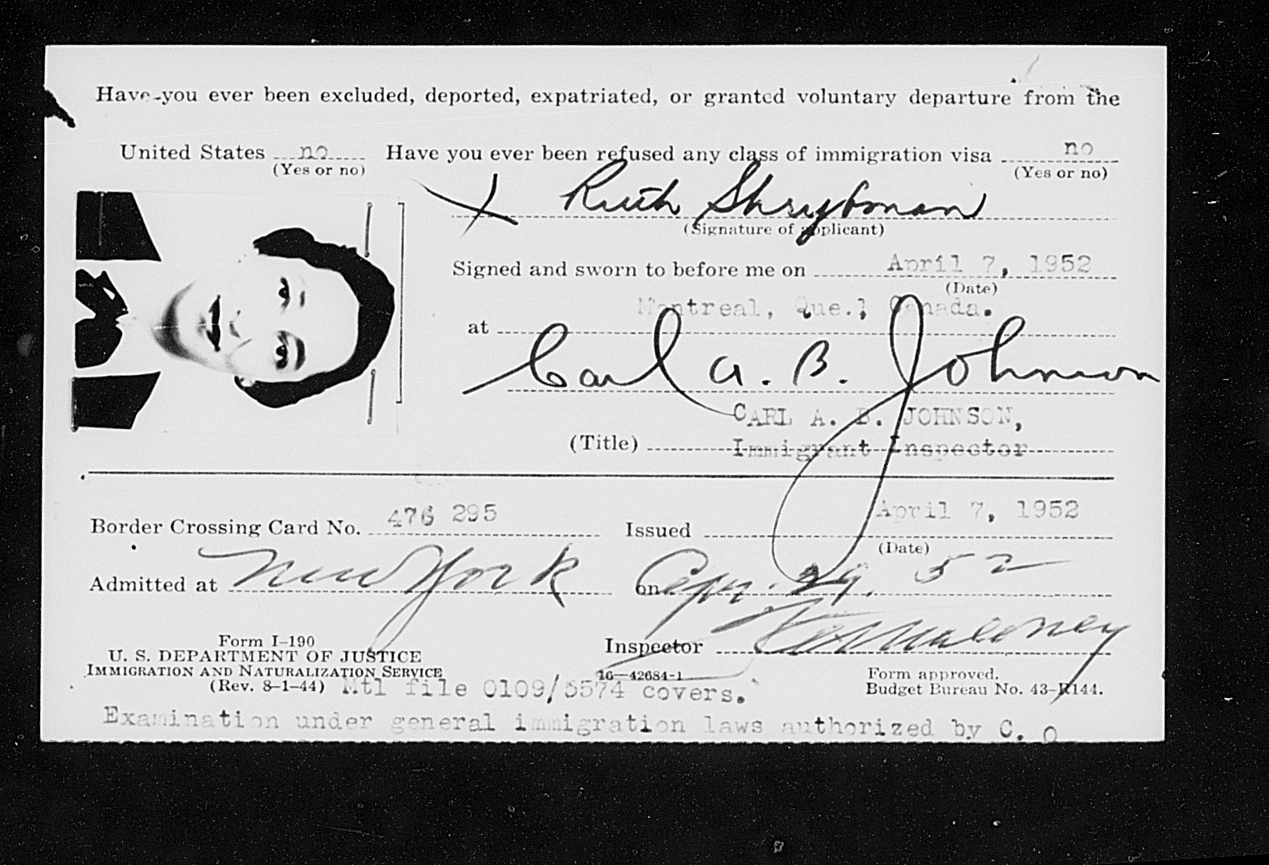 Have you ever been excluded, deported, expatriated, or granted voluntary departure from the
United States no Have you ever been refused any class of immigration visa no
(Yes or no) (Yes or no)
X Ruth Shrybman
(Signature of applicant)
Signed and sworn to before me on April 7, 1952
(Date)
at Montreal, Que., Canada.
Carl A. B. Johnson
CARL A. B. JOHNSON,
(Title) Immigrant Inspector
Border Crossing Card No. 476 295 Issued April 7, 1952
(Date)
Admitted at New York on Apr. 29. 52
Inspector
Form I-190
U. S. DEPARTMENT OF JUSTICE
IMMIGRATION AND NATURALIZATION SERVICE
(Rev. 8-1-44)
16—42684-1
Form approved.
Budget Bureau No. 43-R144.
Mtl file 0109/5574 covers.
Examination under general immigration laws authorized by C. O